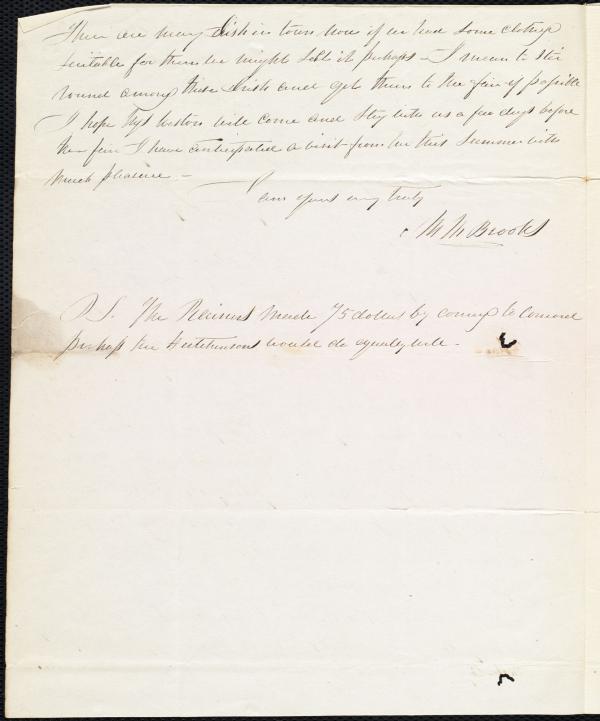 There are many Irish in town now if we had some clothing
suitable for them we might sell it perhaps - I mean to stir
round among these Irish and get them to the fair if possible
I hope Miss Weston will come and stay with us a few days before
the fair I have anticipated a visit from her this summer with
much pleasure -
I am yours very truly
M M Brooks
P.S. The Rainers made 75 dollars by coming to Concord
perhaps the Hutchinsons would do equally well -